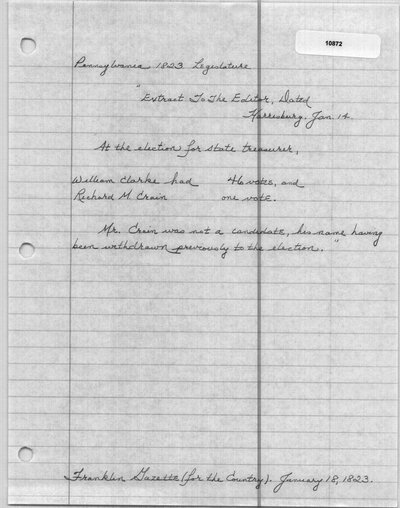 10872
Pennsylvania 1823 Legislature
"Extract To The Editor, Dated
Harrisburg. Jan. 14.
At the election for state treasurer,
William Clarke had 46 votes, and
Richard M. Crain one vote.
Mr. Crain was not a candidate, his name having
been withdrawn previously to the election."
Franklin Gazette (for the Country). January 18, 1823.